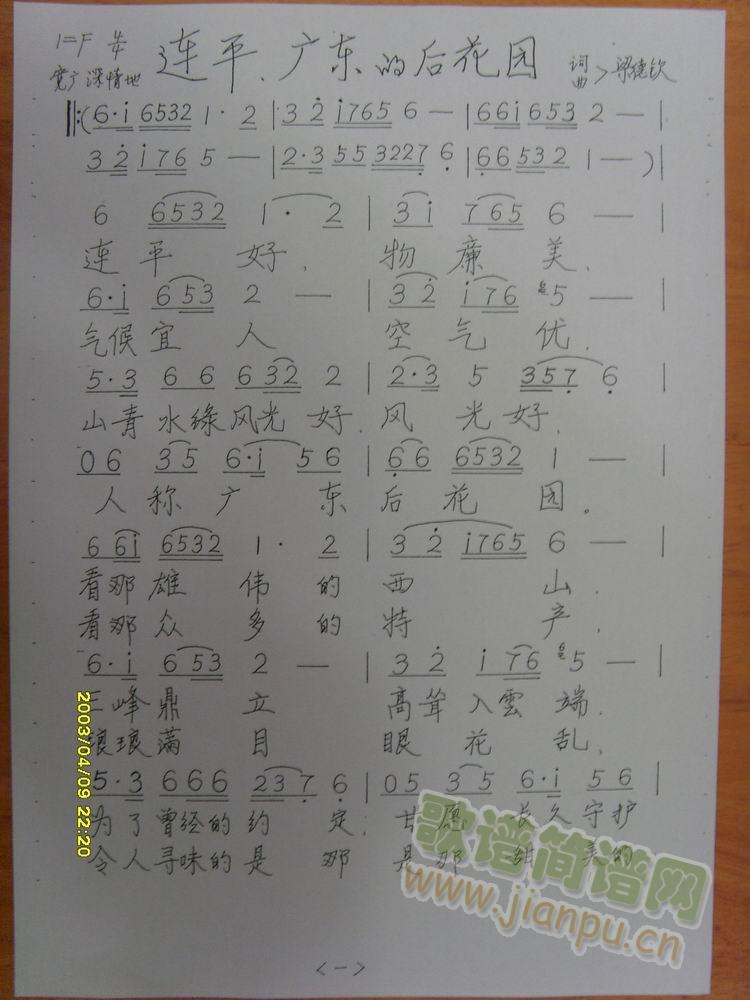 1=F 4/4 连平、广东的后花园 词曲>梁德钦
宽广深情地
‖:(6·i 6532 1·2|3 2 i765 6 —|66i 653 2 —|
3 2 i 76 5 —|2·3 55 3227 6|66532 1 —)
6 6532 1·2|3i 765 6 —|
连平好,物廉美,
6·i 653 2 —|3 2 i76 5 —|
气候宜人空气优.
5·3 66 632 2|2·3 5 357 6
山青水绿风光好,风光好,
06 35 6·i 56|66 6532 1 —|
人称广东后花园。
6 6i 6532 1·2|3 2 i765 6 —|
看那雄伟的西山,
看那众多的特产,
6·i 653 2 —|3 2 i 76 5 —|
三峰鼎立高耸入雲端.
琅琅满目眼花乱.
5·3 666 237 6|05 35 6·i 56|
为了曾经的约定,甘愿长久守护
令人寻味的是那是那甜美的
<一>
2003/04/09 22:20
歌谱简谱网
www.jianpu.cn